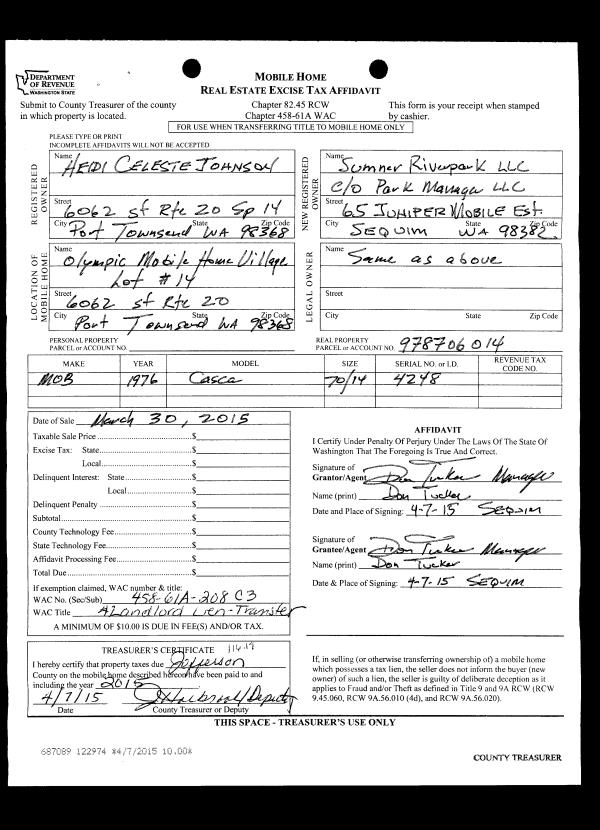 DEPARTMENT
OF REVENUE
WASHINGTON STATE
MOBILE HOME
REAL ESTATE EXCISE TAX AFFIDAVIT
Submit to County Treasurer of the county
in which property is located.
Chapter 82.45 RCW
Chapter 458-61A WAC
This form is your receipt when stamped
by cashier.
FOR USE WHEN TRANSFERRING TITLE TO MOBILE HOME ONLY
PLEASE TYPE OR PRINT
INCOMPLETE AFFIDAVITS WILL NOT BE ACCEPTED
REGISTERED OWNER
Name HEIDI CELESTE JOHNSON
Street 6062 st Rte 20 Sp 14
City State Zip Code
Port Townsend WA 98368
NEW REGISTERED OWNER
Name Sumner Riverpark LLC
c/o Park Manager LLC
Street 65 JUNIPER MOBILE EST.
City State Zip Code
SEQUIM WA 98382
LOCATION OF MOBILE HOME
Name Olympic Mobile Home Village
Lot #14
Street 6062 st Rte 20
City State Zip Code
Port Townsend WA 98368
LEGAL OWNER
Name Same as above
Street
City State Zip Code
PERSONAL PROPERTY
PARCEL or ACCOUNT NO.
REAL PROPERTY
PARCEL or ACCOUNT NO. 978706014
MAKE YEAR MODEL SIZE SERIAL NO. or I.D. REVENUE TAX CODE NO.
MOB 1976 Casca 70/14 4248
Date of Sale March 30, 2015
Taxable Sale Price $
Excise Tax: State $
Local $
Delinquent Interest: State $
Local $
Delinquent Penalty $
Subtotal $
County Technology Fee $
State Technology Fee $
Affidavit Processing Fee $
Total Due $
If exemption claimed, WAC number & title:
WAC No. (Sec/Sub) 458-61A-208 C3
WAC Title Landlord Lien-Transfer
A MINIMUM OF $10.00 IS DUE IN FEE(S) AND/OR TAX.
AFFIDAVIT
I Certify Under Penalty Of Perjury Under The Laws Of The State Of
Washington That The Foregoing Is True And Correct.
Signature of
Grantor/Agent Don Tucker Manager
Name (print) Don Tucker
Date and Place of Signing: 4-7-15 SEQUIM
Signature of
Grantee/Agent Don Tucker Manager
Name (print) Don Tucker
Date & Place of Signing: 4-7-15 SEQUIM
TREASURER'S CERTIFICATE
I hereby certify that property taxes due Jefferson
County on the mobile home described hereon have been paid to and
including the year 2015
4/7/15 Deputy
Date County Treasurer or Deputy
If, in selling (or otherwise transferring ownership of) a mobile home
which possesses a tax lien, the seller does not inform the buyer (new
owner) of such a lien, the seller is guilty of deliberate deception as it
applies to Fraud and/or Theft as defined in Title 9 and 9A RCW (RCW
9.45.060, RCW 9A.56.010 (4d), and RCW 9A.56.020).
THIS SPACE - TREASURER'S USE ONLY
687089 122974 *4/7/2015 10.00*
COUNTY TREASURER